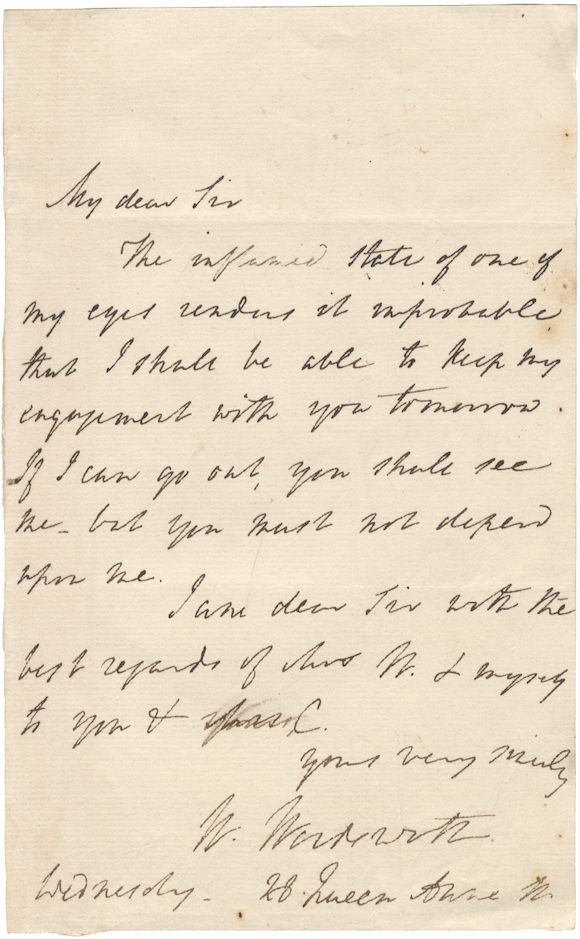 My dear Sir
The inflamed state of one of
my eyes renders it improbable
that I shall be able to keep my
engagement with you tomorrow.
If I can go out, you shall see
me - but you must not depend
upon me.
I am dear Sir with the
best regards of Mrs W. & myself
to you &
yours very truly
W. Wordsworth
Wednesday - 28 Queen Anne St.